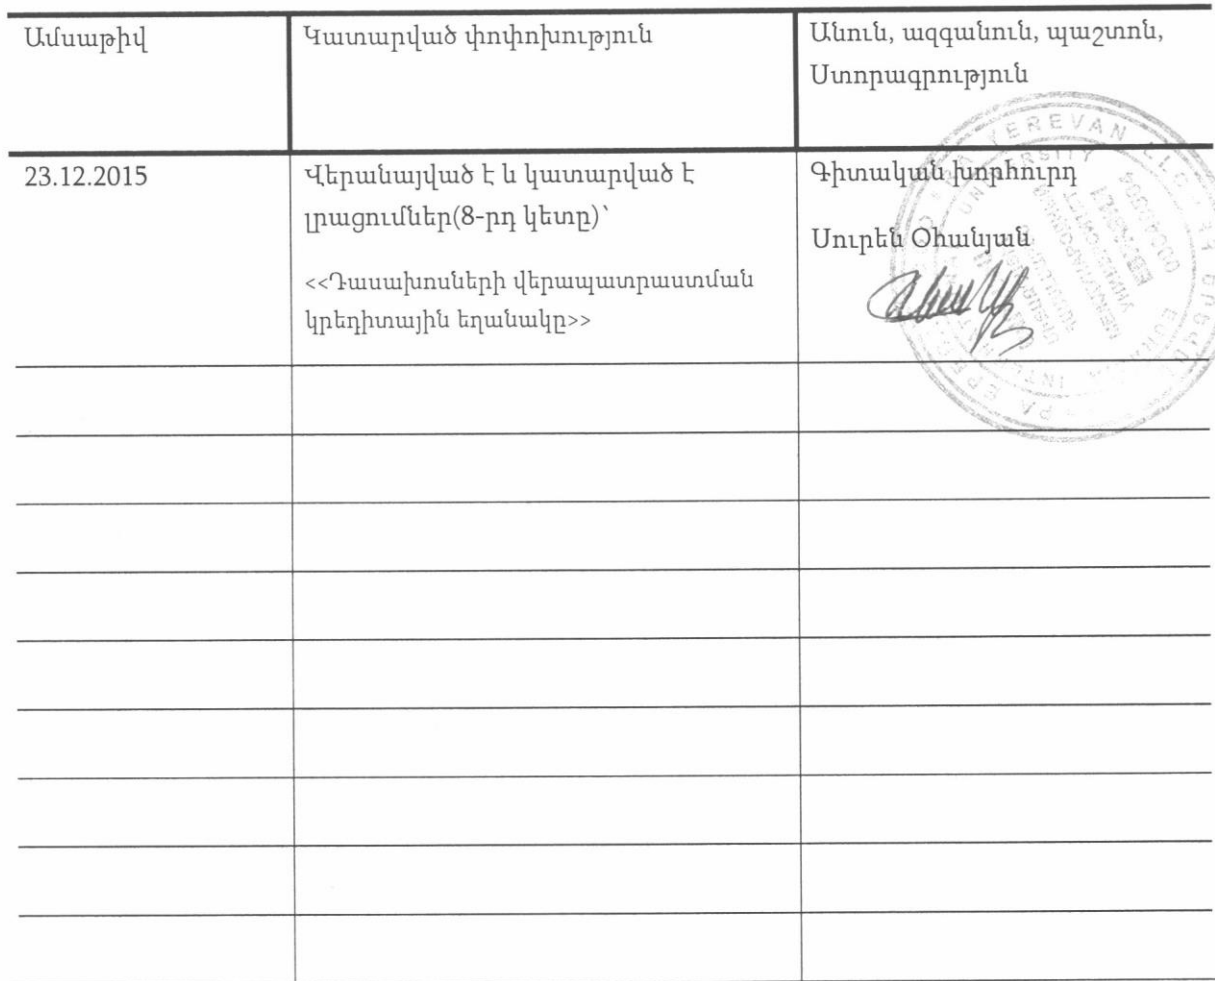 Ամսաթիվ
Կատարված փոփոխություն
Անուն, ազգանուն, պաշտոն,
Ստորագրություն
23.12.2015
Վերանայված է և կատարված է
լրացումներ(8-րդ կետը)՝
<<Դասախոսների վերապատրաստման
կրեդիտային եղանակը>>
Գիտական խորհուրդ
Սուրեն Օհանյան
YEREVAN LLC
UNIVERSITY
00040394